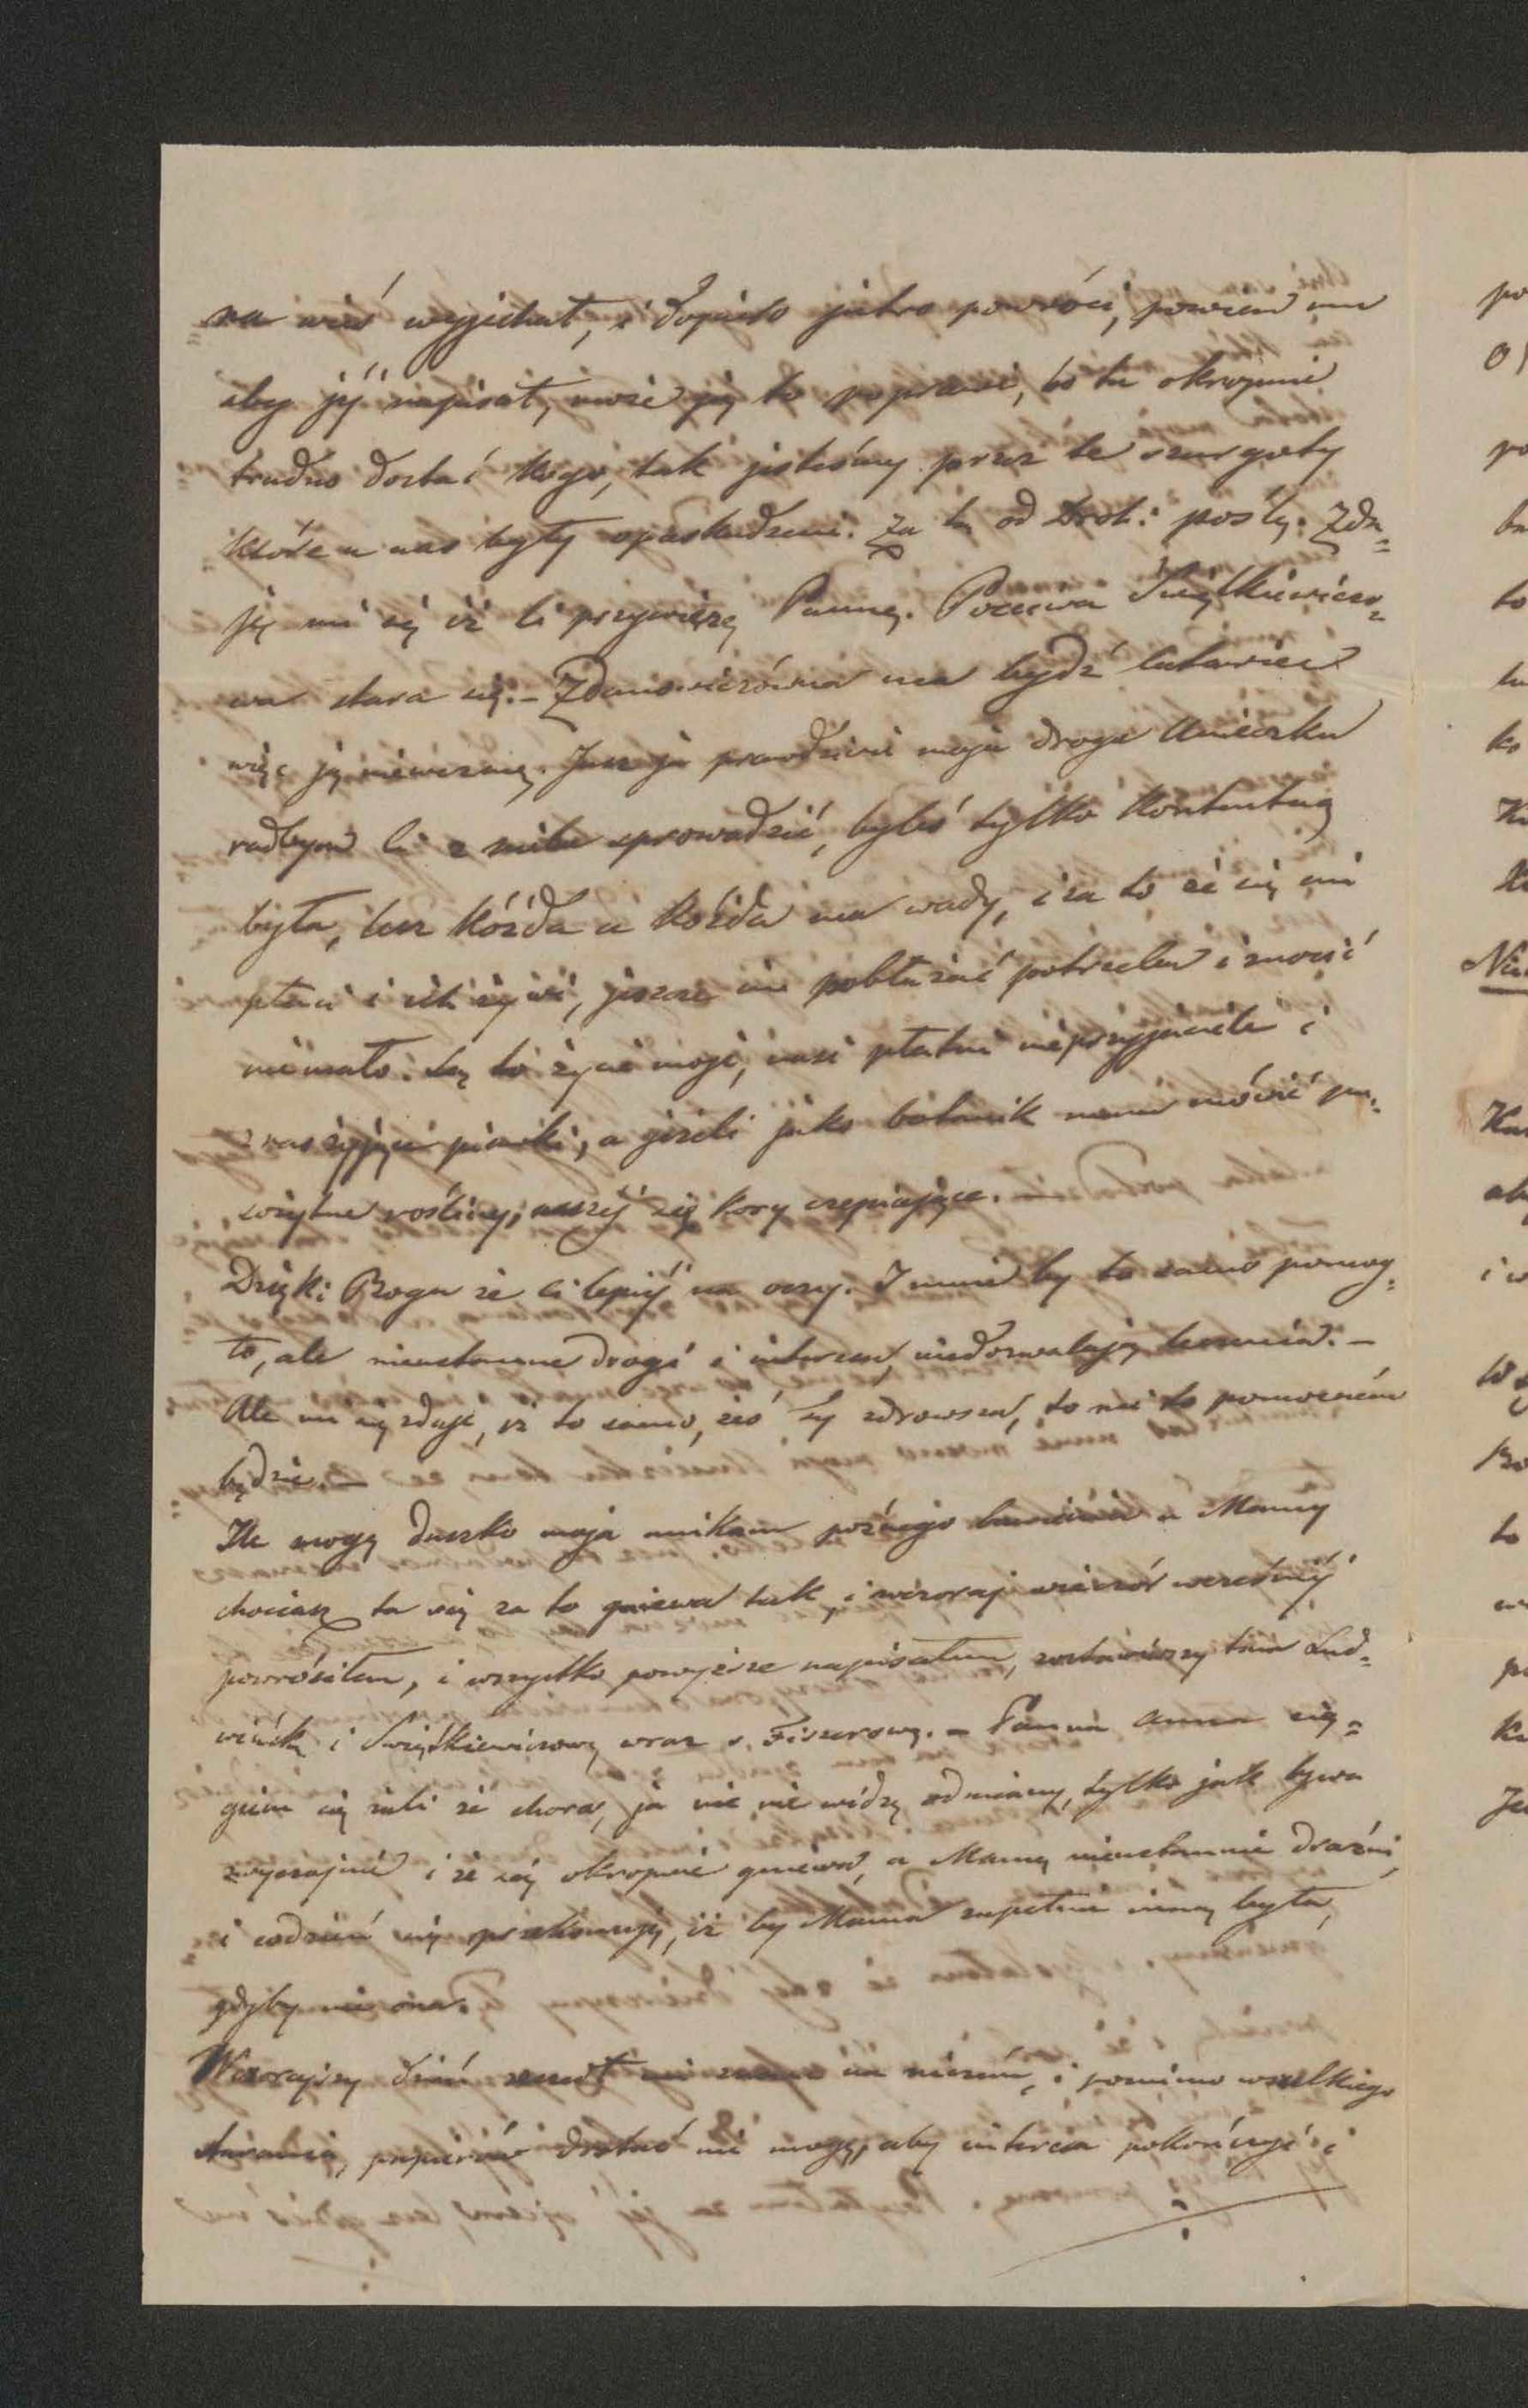 na wieś wyjechał, i dopiero jutro powróci, powiem mu
aby jéj napisał, może ją to poprawi, bo tu okropnie
trudno dostać kogo, tak jesteśmy przez te szurgoty
które u nas były opaskudzeni. Za tą od Droh: poślę. Zda=
je mi się iż Ci przywiozę Pannę. Poczciwa Świątkiewiczo=
wa stara się. – Zdanowiczówna ma bydź latawiec
więc ją niewezmę. Jużja prawdziwie moja droga Anieczku
radbym Ci z nieba sprowadzić, byleś tylko kontentną
była, lecz kóżda a kóżda ma wady, i za to że się im
płaci i ich żywi, jeszcze im pobłażać potrzeba i znosić
niemało. Są to życie moje, nasi płatni nieprzyjaciele i
z nas żyjące pijawki, a jeżeli jako botanik mam mówić pa=
sożytne rośliny, naszéj się kory czepiające. –
Dzięki Bogu że Ci lepiéj na oczy. I mnie by to samo pomog=
ło, ale nieustanne drogi i interesa, niedozwalają leczenia. –
Ale mi się zdaje, iż to samo, żeś Ty zdrowsza, to mi to pomocném
będzie. –
Ile mogę duszko moja unikam późnego bawienia u Mamy
chociaż ta się za to gniewa tak, i wczoraj wieczór wcześniéj
powróciłem, i wszystko powyższe napisałem, zostawiwszy tam Lud=
wińcką i Świątkiewiczową wraz z Fiszerową. – Panna Anna cią=
giem się żali że chora, ja nic nie widzę odmiany, tylko jak bywa
zwyczajnie i że się okropnie gniewa, a Mamę nieustannie drażni,
i codzień się przekonuję, iż by Mama zupełnie inną była,
gdyby nie ona.
Wczorajszy dzień zeszedł mi na niczém, i pomimo wszelkiego
starania, papierów dostać nie mogę, aby interesa pokończyć i